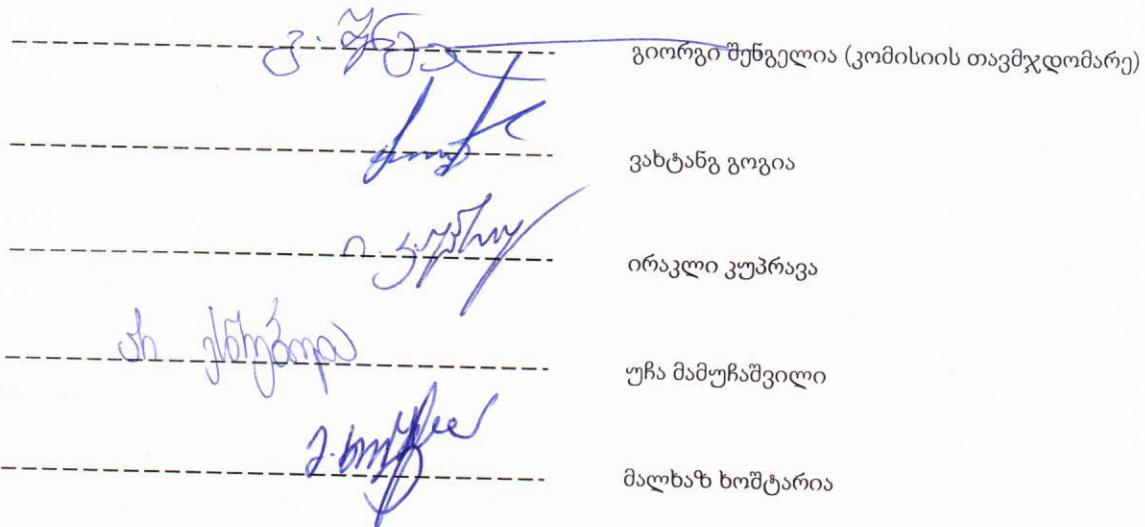 გიორგი შენგელია (კომისიის თავმჯდომარე)
ვახტანგ გოგია
ირაკლი კუპრავა
არ ესწრებოდა
უჩა მამუჩაშვილი
მალხაზ ხოშტარია